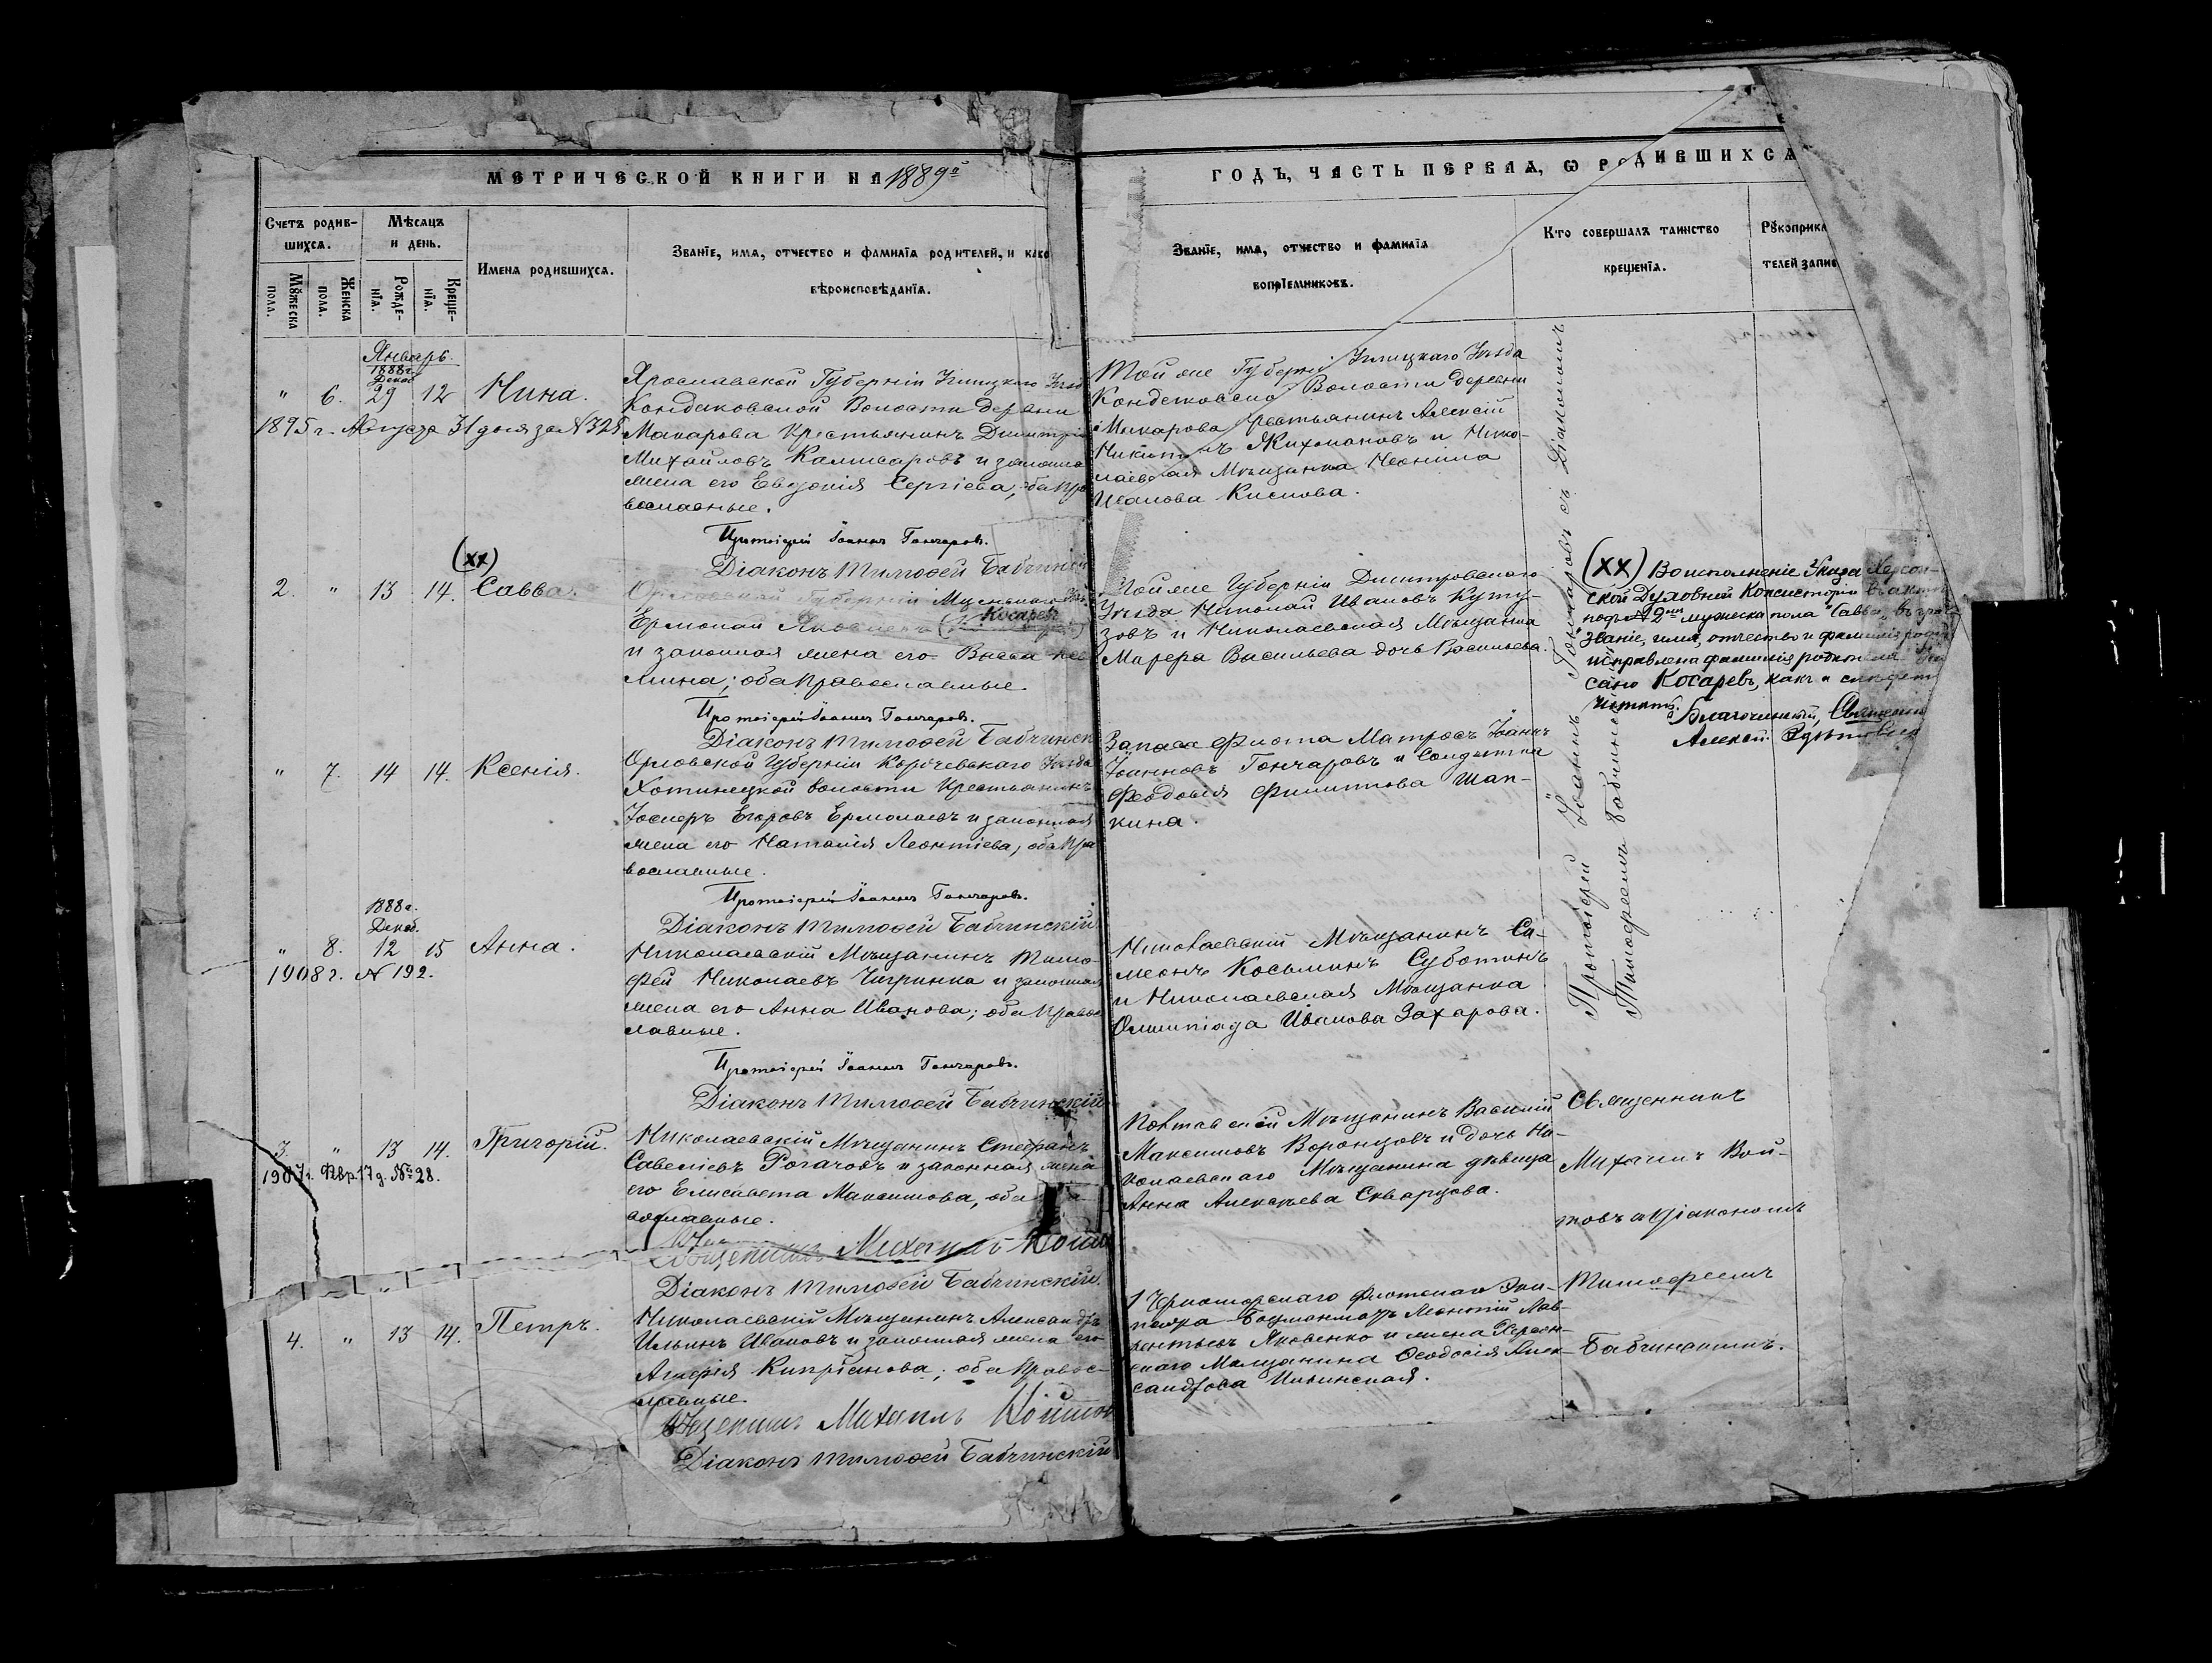 МЕТРИЧЕСКОЙ КНИГИ НА 1889й
ГОДЪ, ЧАСТЬ ПЕРВАЯ, Ѡ РОДИВШИХСЯ
Счетъ родив-
шихся.
Мѣсяцъ
и день.
Мꙋжеска
пола.
Женска
пола.
Рожде-
нія.
Креще-
нія.
Имена родившихся.
Званіе, имя, отчество и фамилія родителей, и како
вѣроисповѣданія.
Званіе, имя, отчество и фамилія
воспріемниковъ.
Кто совершалъ таинство
крещенія.
Рꙋкоприкл
телей запис
Январь.
1888г.
Декаб
" 6. 29 12 Нина.
1895 г. Августа 31 дня за №325
Ярославской Губерніи Углицкого Уѣзд
Кондаковской Волости деревни
Макарова Крестьянинъ Димитрій
Михайловъ Камисаровъ и законна
жена его Евдокія Сергіева; оба пра
вославные.
Протоіерей Іоаннъ Гончаровъ.
Діаконъ Тимоѳей Бабчинскій
Той же Губерніи Углицкаго Уѣзда
Кондаковско Волости деревни
Макарова Крестьянинъ Алексій
Никит нъ Жихмановъ и Нико-
лаевская Мѣщанка Неонила
Иванова Кислова.
(хх)
2. " 13 14. Савва.
Орловской Губерніи Мценскаго Уѣз
Косаревъ
Ермолай Яковлевъ
и законная жена его
оба православные.
Протоіерей Іоаннъ Гончаровъ.
Діаконъ Тимоѳей Бабчинск
Той же Губерніи Дмитровскаго
Уѣзда Николай Ивановъ Куту-
зовъ и Николаевская Мѣщанка
Васильева дочь Васильева.
(ХХ) Во исполненіе Указа Херсон-
ской Духовной Консисторіи въ актѣ
подъ №2мъ мужеска пола "Савва", въ граф
званіе, имя, отчество и фамилія родит
исправлена фамилія родителя
сано Косаревъ, какъ и слѣдует
читать.
Благочинный, Священни
Алексій
" 7. 14 14. Ксенія.
Орловской Губерніи Корочевскаго Уѣзда
Хотинецкой волости Крестьянинъ
Іосифъ Егоровъ Ермолаевъ и законная
жена его Наталія Леонтіева, оба пра
вославные.
Протоіерей Іоаннъ Гончаровъ.
Діаконъ Тимоѳей Бабчинскій.
Запаса флота Матросъ Іоаннъ
Іоанновъ Гончаровъ и Солдатка
Феодосія Филиппова Шап-
кина.
1888г.
Декаб.
" 8. 12 15 Анна.
1908г. № 192.
Николаевскій Мѣщанинъ Тимо-
фей Николаевъ Чигринка и законная
жена его Анна Иванова; оба правос
лавные.
Протоіерей Іоаннъ Гончаровъ.
Діаконъ Тимоѳей Бабчинскій
Николаевскій Мѣщанинъ Си-
меонъ Косьминъ Суботинъ
и Николаевская Мѣщанка
Олимпіада Иванова Захарова.
Протоіерей Іоаннъ Гончаровъ съ Діакономъ
Тимофеемъ Бабчинскимъ
3. " 13 14. Григорій.
1907г. Фвр. 17 д. №28.
Николаевскій Мѣщанинъ Стефанъ
Савеліевъ Рогачовъ и законная жена
его Елисавета Максимова, оба
вославные.
Священникъ Михаилъ Войт
Діаконъ Тимоѳей Бабчинскій.
Полтавскій Мѣщанинъ Василій
Максимовъ Воронцовъ и дочь Ни-
колаевскаго Мѣщанина дѣвица
Анна Алексѣева Скварцова.
Священникъ
Михаилъ Вой-
товъ съ діакономъ
Тимофеемъ
Бабчинскимъ.
4. " 13 14. Петръ.
Николаевскій Мѣщанинъ Александръ
Ильинъ Ивановъ и законная жена его
Кипріанова; оба правос-
лавные.
Священникъ Михаилъ Войтов
Діаконъ Тимоѳей Бабчинскій
1 Черноморскаго флотскаго Эки-
пажа Боцманматъ Леонтій Лав-
рентьевъ Яковенко и жена Херсон-
скаго Мѣщанина Ѳеодосія Алек-
сандрова Ильинская.